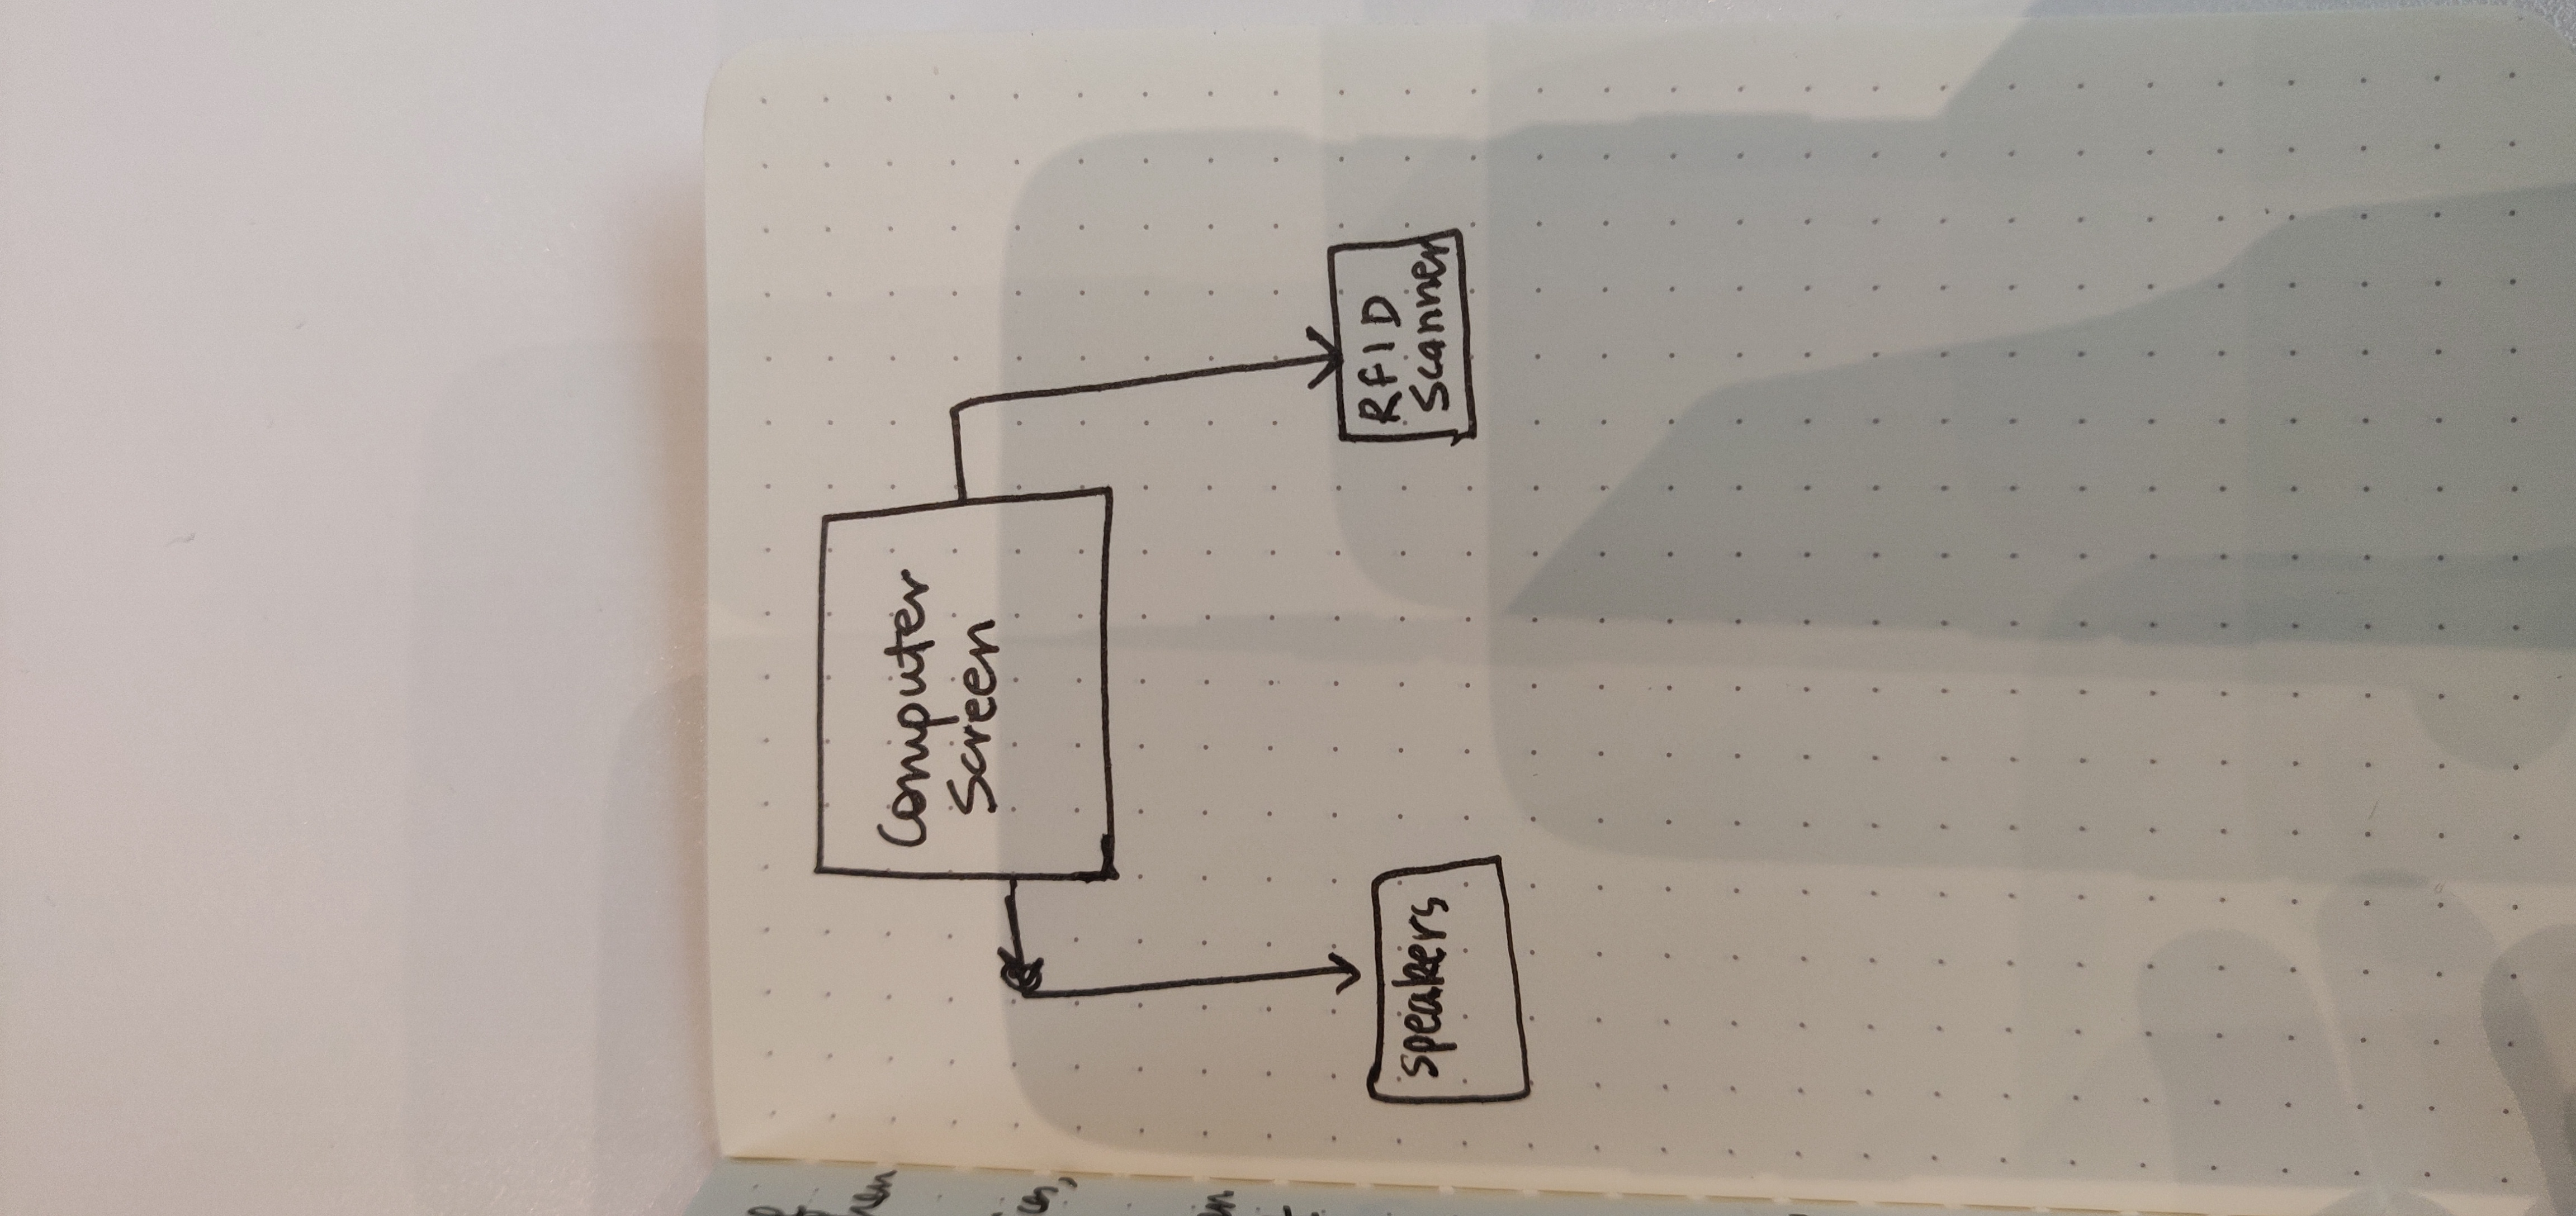 Computer
Screen
speakers
RFID
Scanner